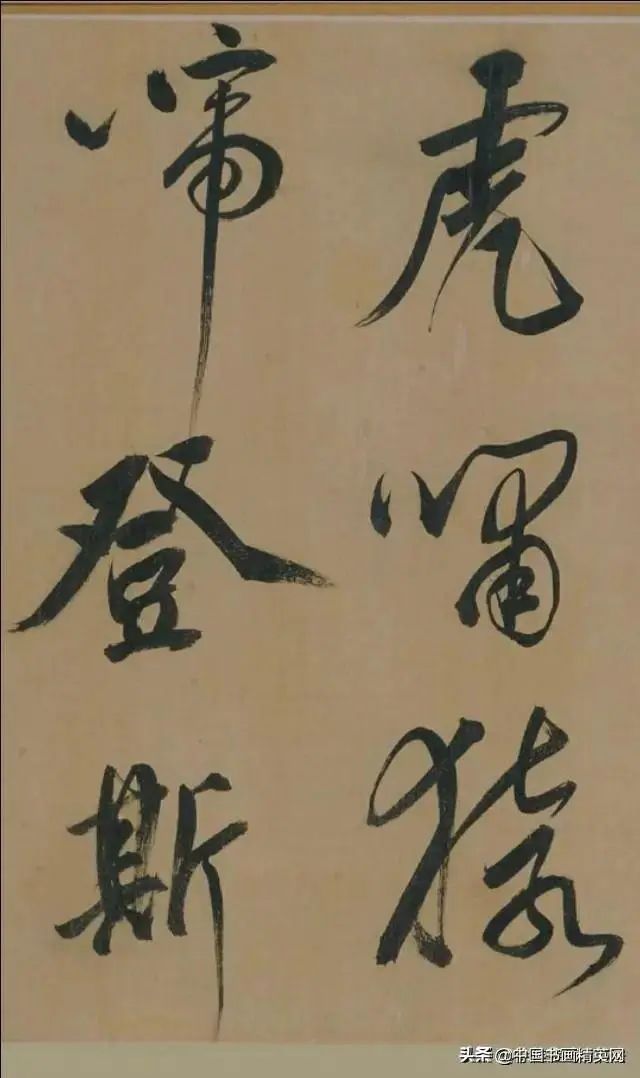 虎嘯猿
啼登斯
头条 @中国书画精英网